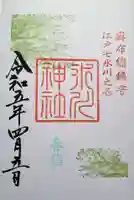 麻布總鎮守
江戸七氷川之一
氷川神社
令和五年四月五日